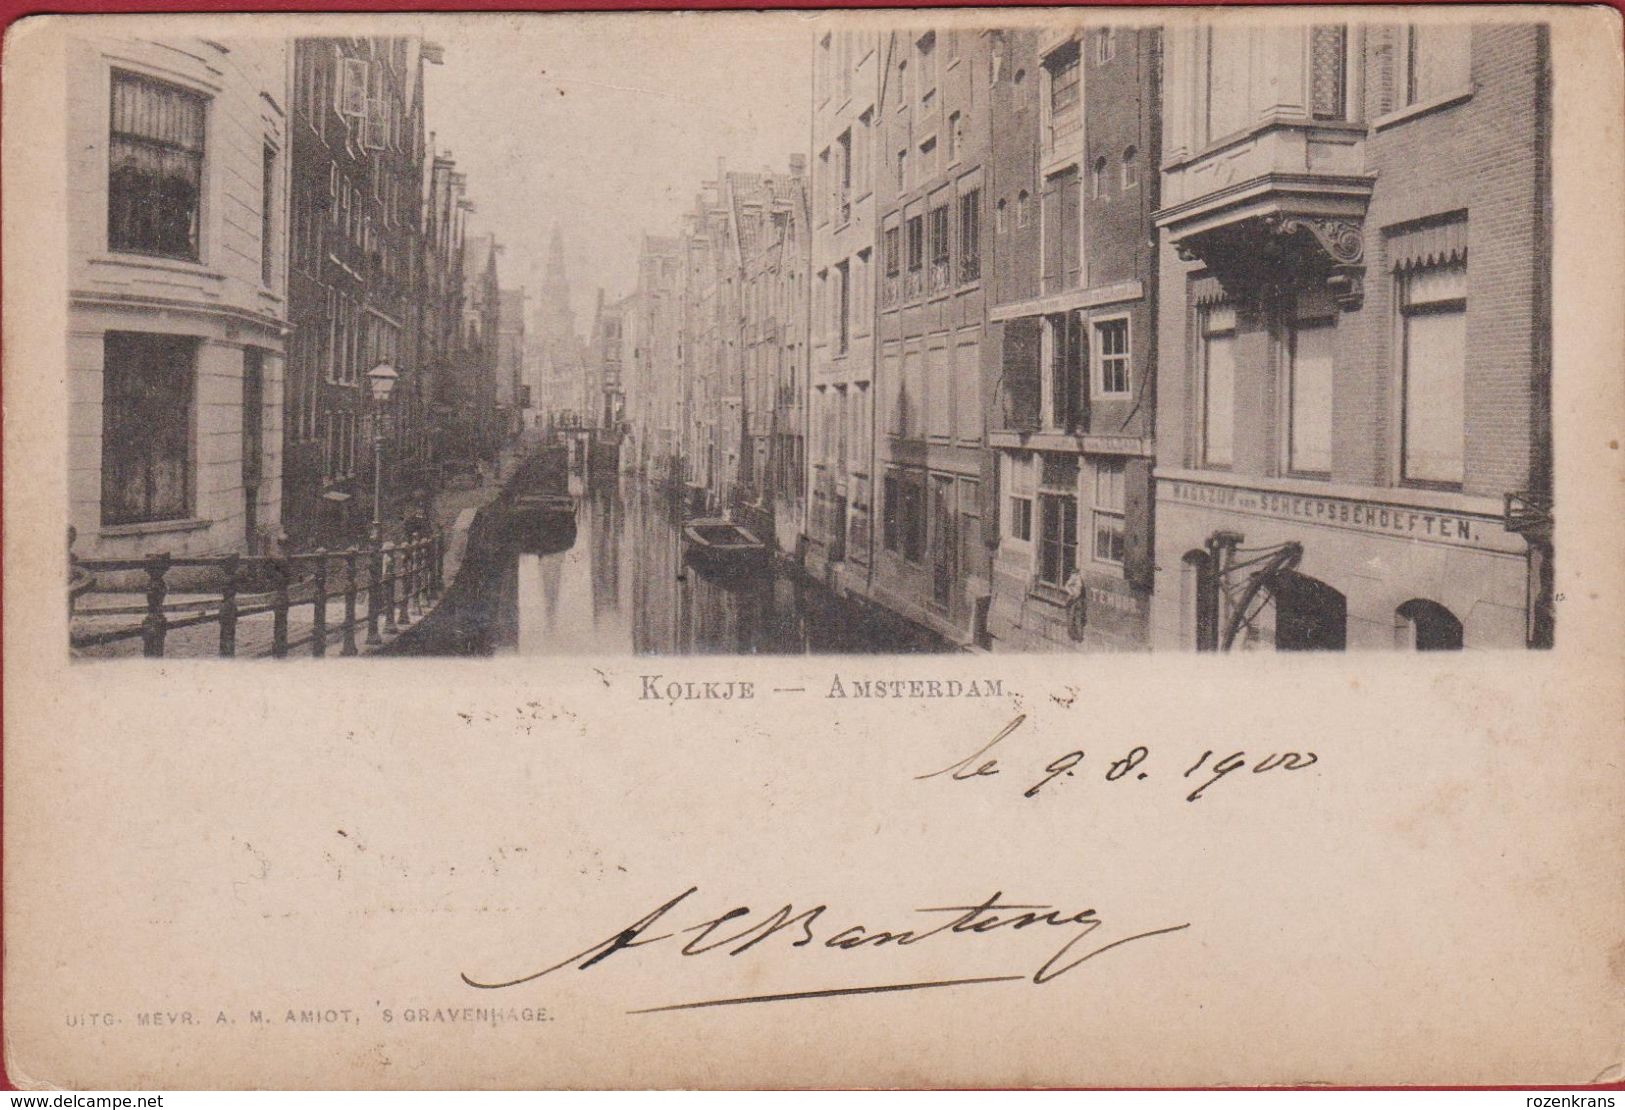 MAGAZIJN VAN SCHEEPSBEHOEFTEN.
KOLKJE — AMSTERDAM.
le 9. 8. 1900
UITG. MEVR. A. M. AMIOT, 'S GRAVENHAGE.
www.delcampe.net
rozenkrans